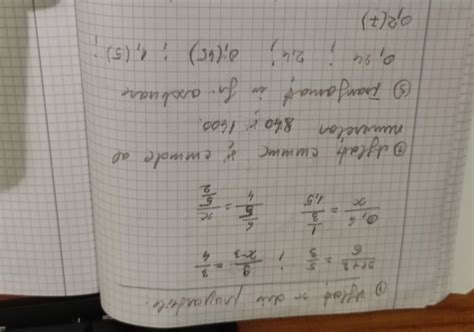 ① Aflați x din proporțiile:
(2x+3)/6 = 5/3 ; 9/(x-3) = 3/4
0,6/x = (1/3)/1,5 (6/5)/4 = x/(5/2)
② Aflați c.m.m.d.c și c.m.m.m.c al
numerelor 840 și 1600.
③ Transformați în fr. ordinare
0,24 ; 2,4 ; 0,(45) ; 1,(5) ;
0,2(7)